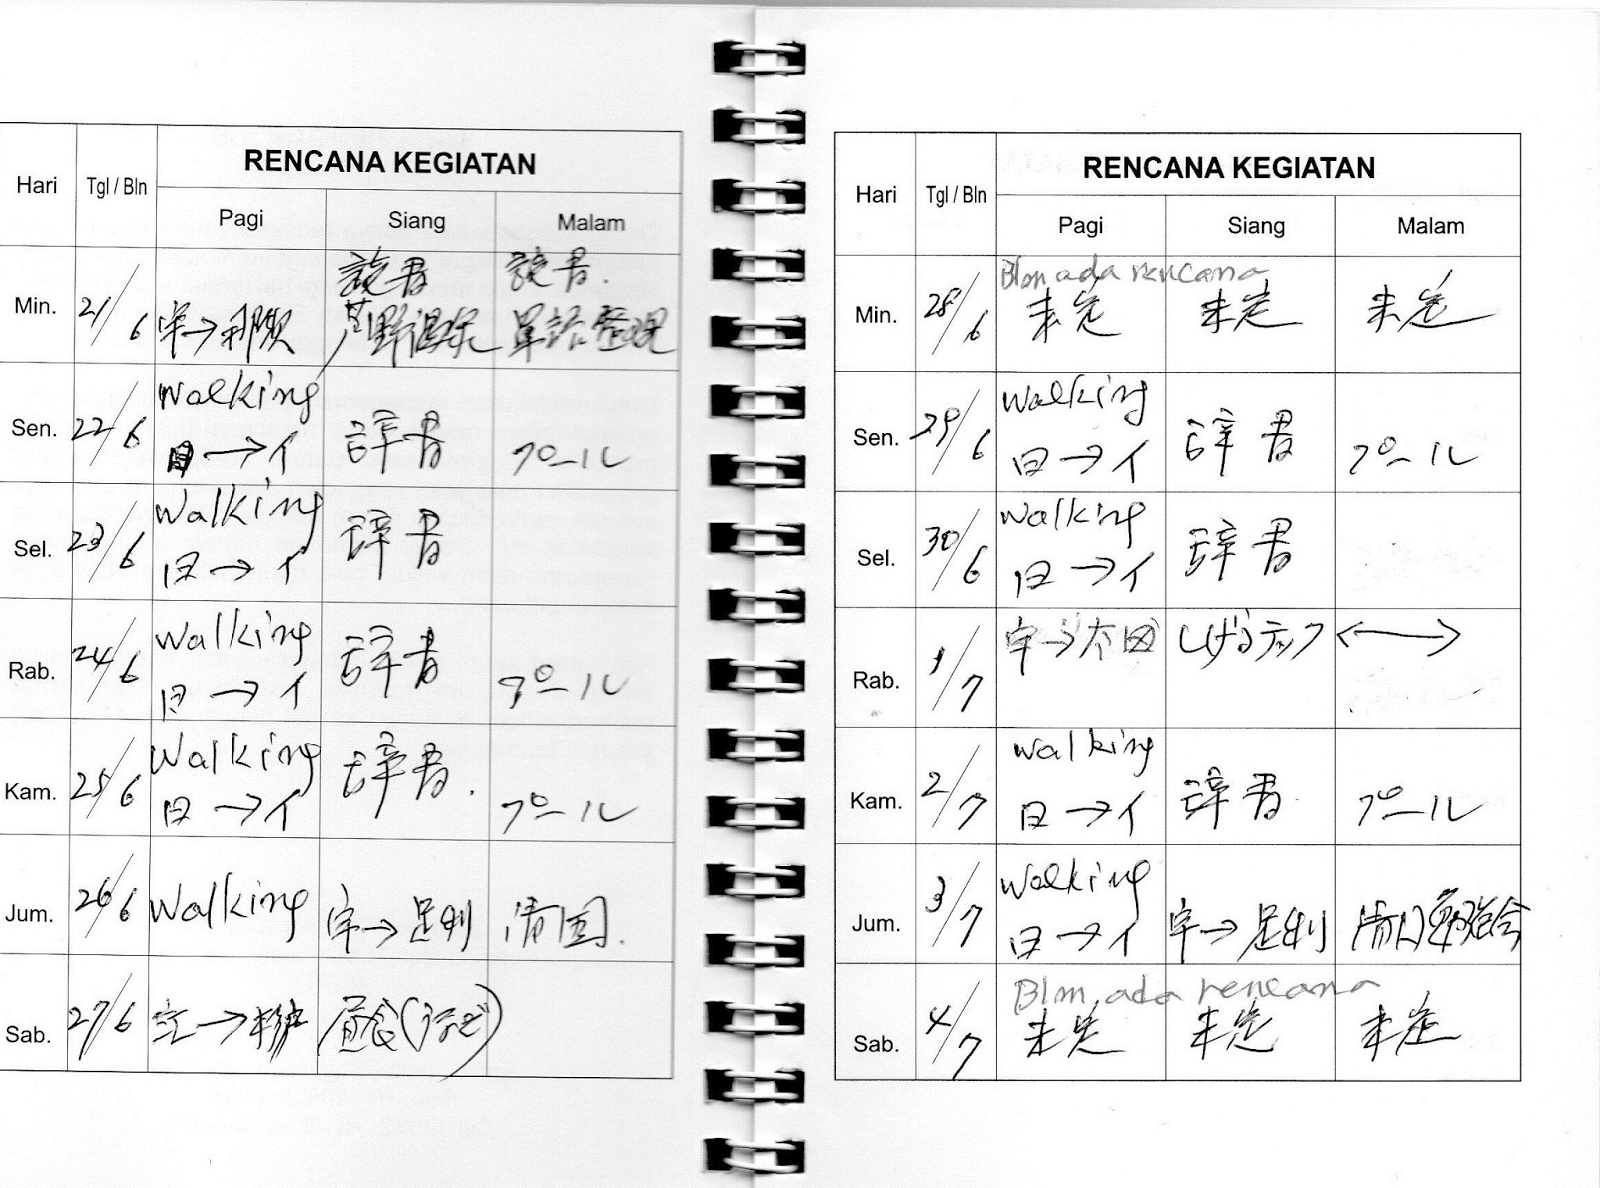 RENCANA KEGIATAN
Hari Tgl / Bln
Pagi Siang Malam
読書 読書.
Min. 21/6 単語整理
Walking
Sen. 22/6 日→イ 辞書 プール
Walking
Sel. 23/6 日→イ 辞書
Walking
Rab. 24/6 日→イ 辞書 プール
Walking
Kam. 25/6 日→イ 辞書. プール
Jum. 26/6 Walking 宇→足利
Sab. 27/6 昼食
RENCANA KEGIATAN
Hari Tgl / Bln
Pagi Siang Malam
Blm ada rencana
Min. 28/6 未定 未定 未定
Walking
Sen. 29/6 日→イ 辞書 プール
Walking
Sel. 30/6 日→イ 辞書
Rab. 1/7 宇→太田
Walking
Kam. 2/7 日→イ 辞書 プール
Walking
Jum. 3/7 日→イ 宇→足利 勉強会
Blm ada rencana
Sab. 4/7 未定 未定 未定